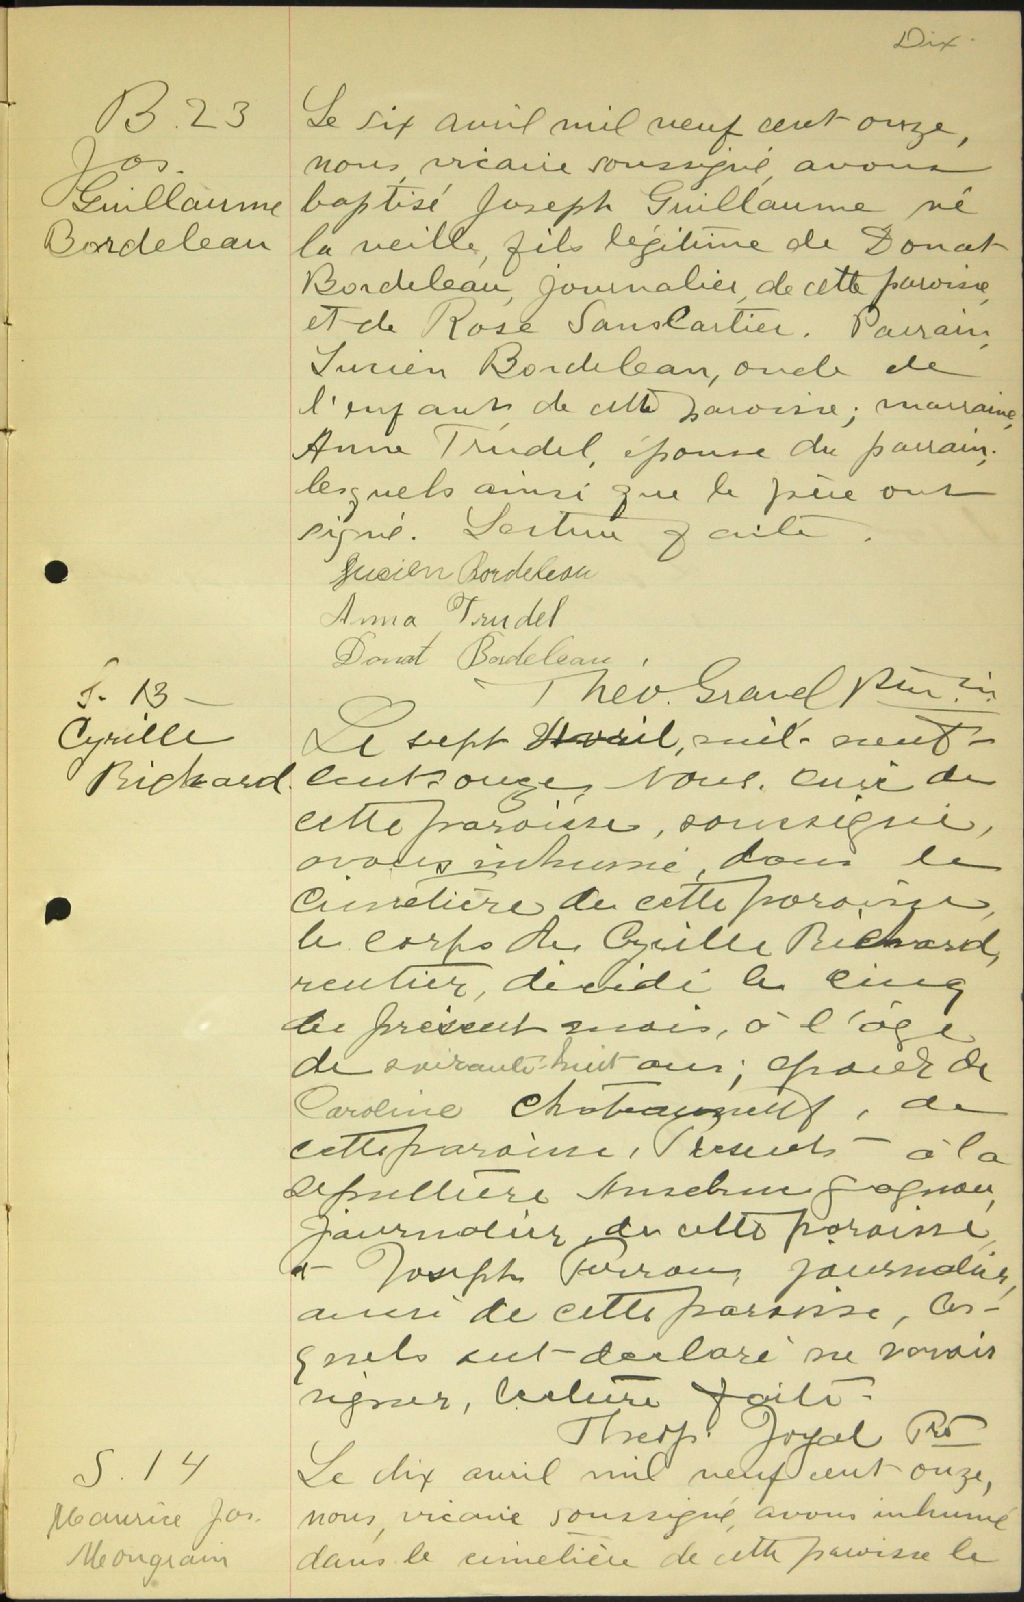 Dix
B. 23
Jos.
Guillaume
Bordeleau
Le six avril mil neuf cent onze,
nous, vicaire soussigné, avons
baptisé Joseph Guillaume né
la veille, fils légitime de Donat
Bordeleau, journalier, de cette paroisse,
et de Rose SansCartier. Parrain,
Lucien Bordeleau, oncle de
l'enfant, de cette paroisse; marraine,
Anna Trudel, épouse du parrain;
lesquels ainsi que le père ont
signé. Lecture faite.
Lucien Bordeleau
Anna Trudel
Donat Bordeleau
Theo. Gravel Ptre vic.
S. 13
Cyrille
Richard.
Le sept Avril, mil-neuf-
cent-onze, Nous, curé de
cette paroisse, soussigné,
avons inhumé, dans le
cimetière de cette paroisse,
le corps de Cyrille Richard,
rentier, décédé le cinq
du présent mois, à l'âge
de soixante-huit ans; époux de
Caroline Chateauneuf, de
cette paroisse. Présents à la
sépulture Anselme Gagnon,
journalier, de cette paroisse,
et Joseph Perron, journalier,
aussi de cette paroisse, les-
quels ont déclaré ne savoir
signer, lecture faite.
Theop. Joyal Ptre
S. 14
Maurice Jos.
Mongrain
Le dix avril mil neuf cent onze,
nous, vicaire soussigné, avons inhumé
dans le cimetière de cette paroisse le